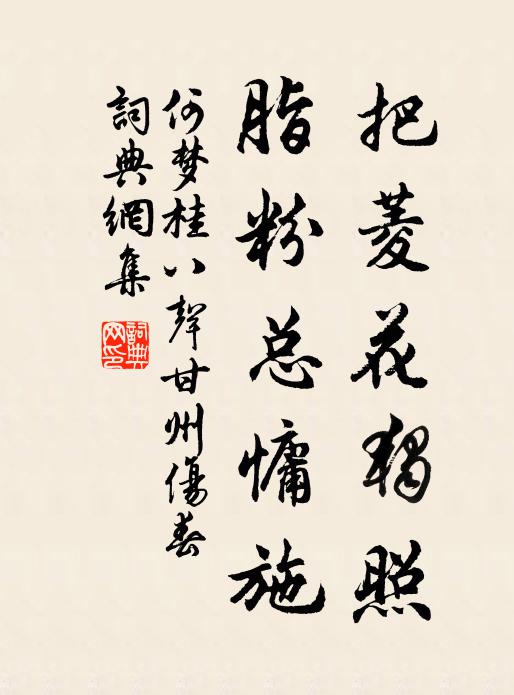 把菱花独照
脂粉总慵施
何梦桂八声甘州傷春
詞典網集
詞典網印